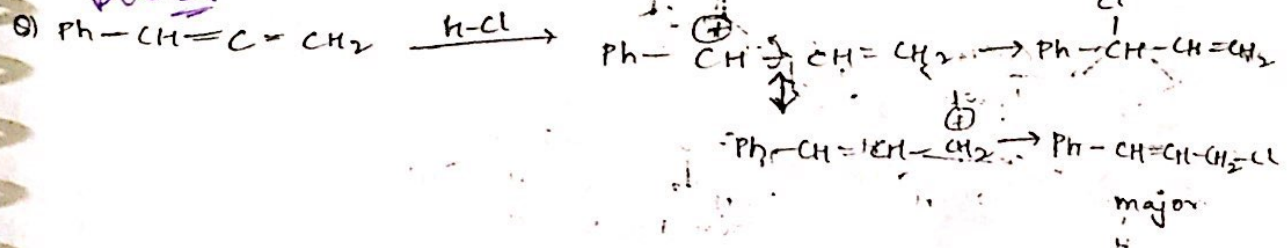 Q) Ph-CH=C=CH2 H-Cl → Ph-CH-CH=CH2 → Ph-CH-CH=CH2
⊕ Cl
↕
Ph-CH=CH-CH2 → Ph-CH=CH-CH2-Cl
⊕
major